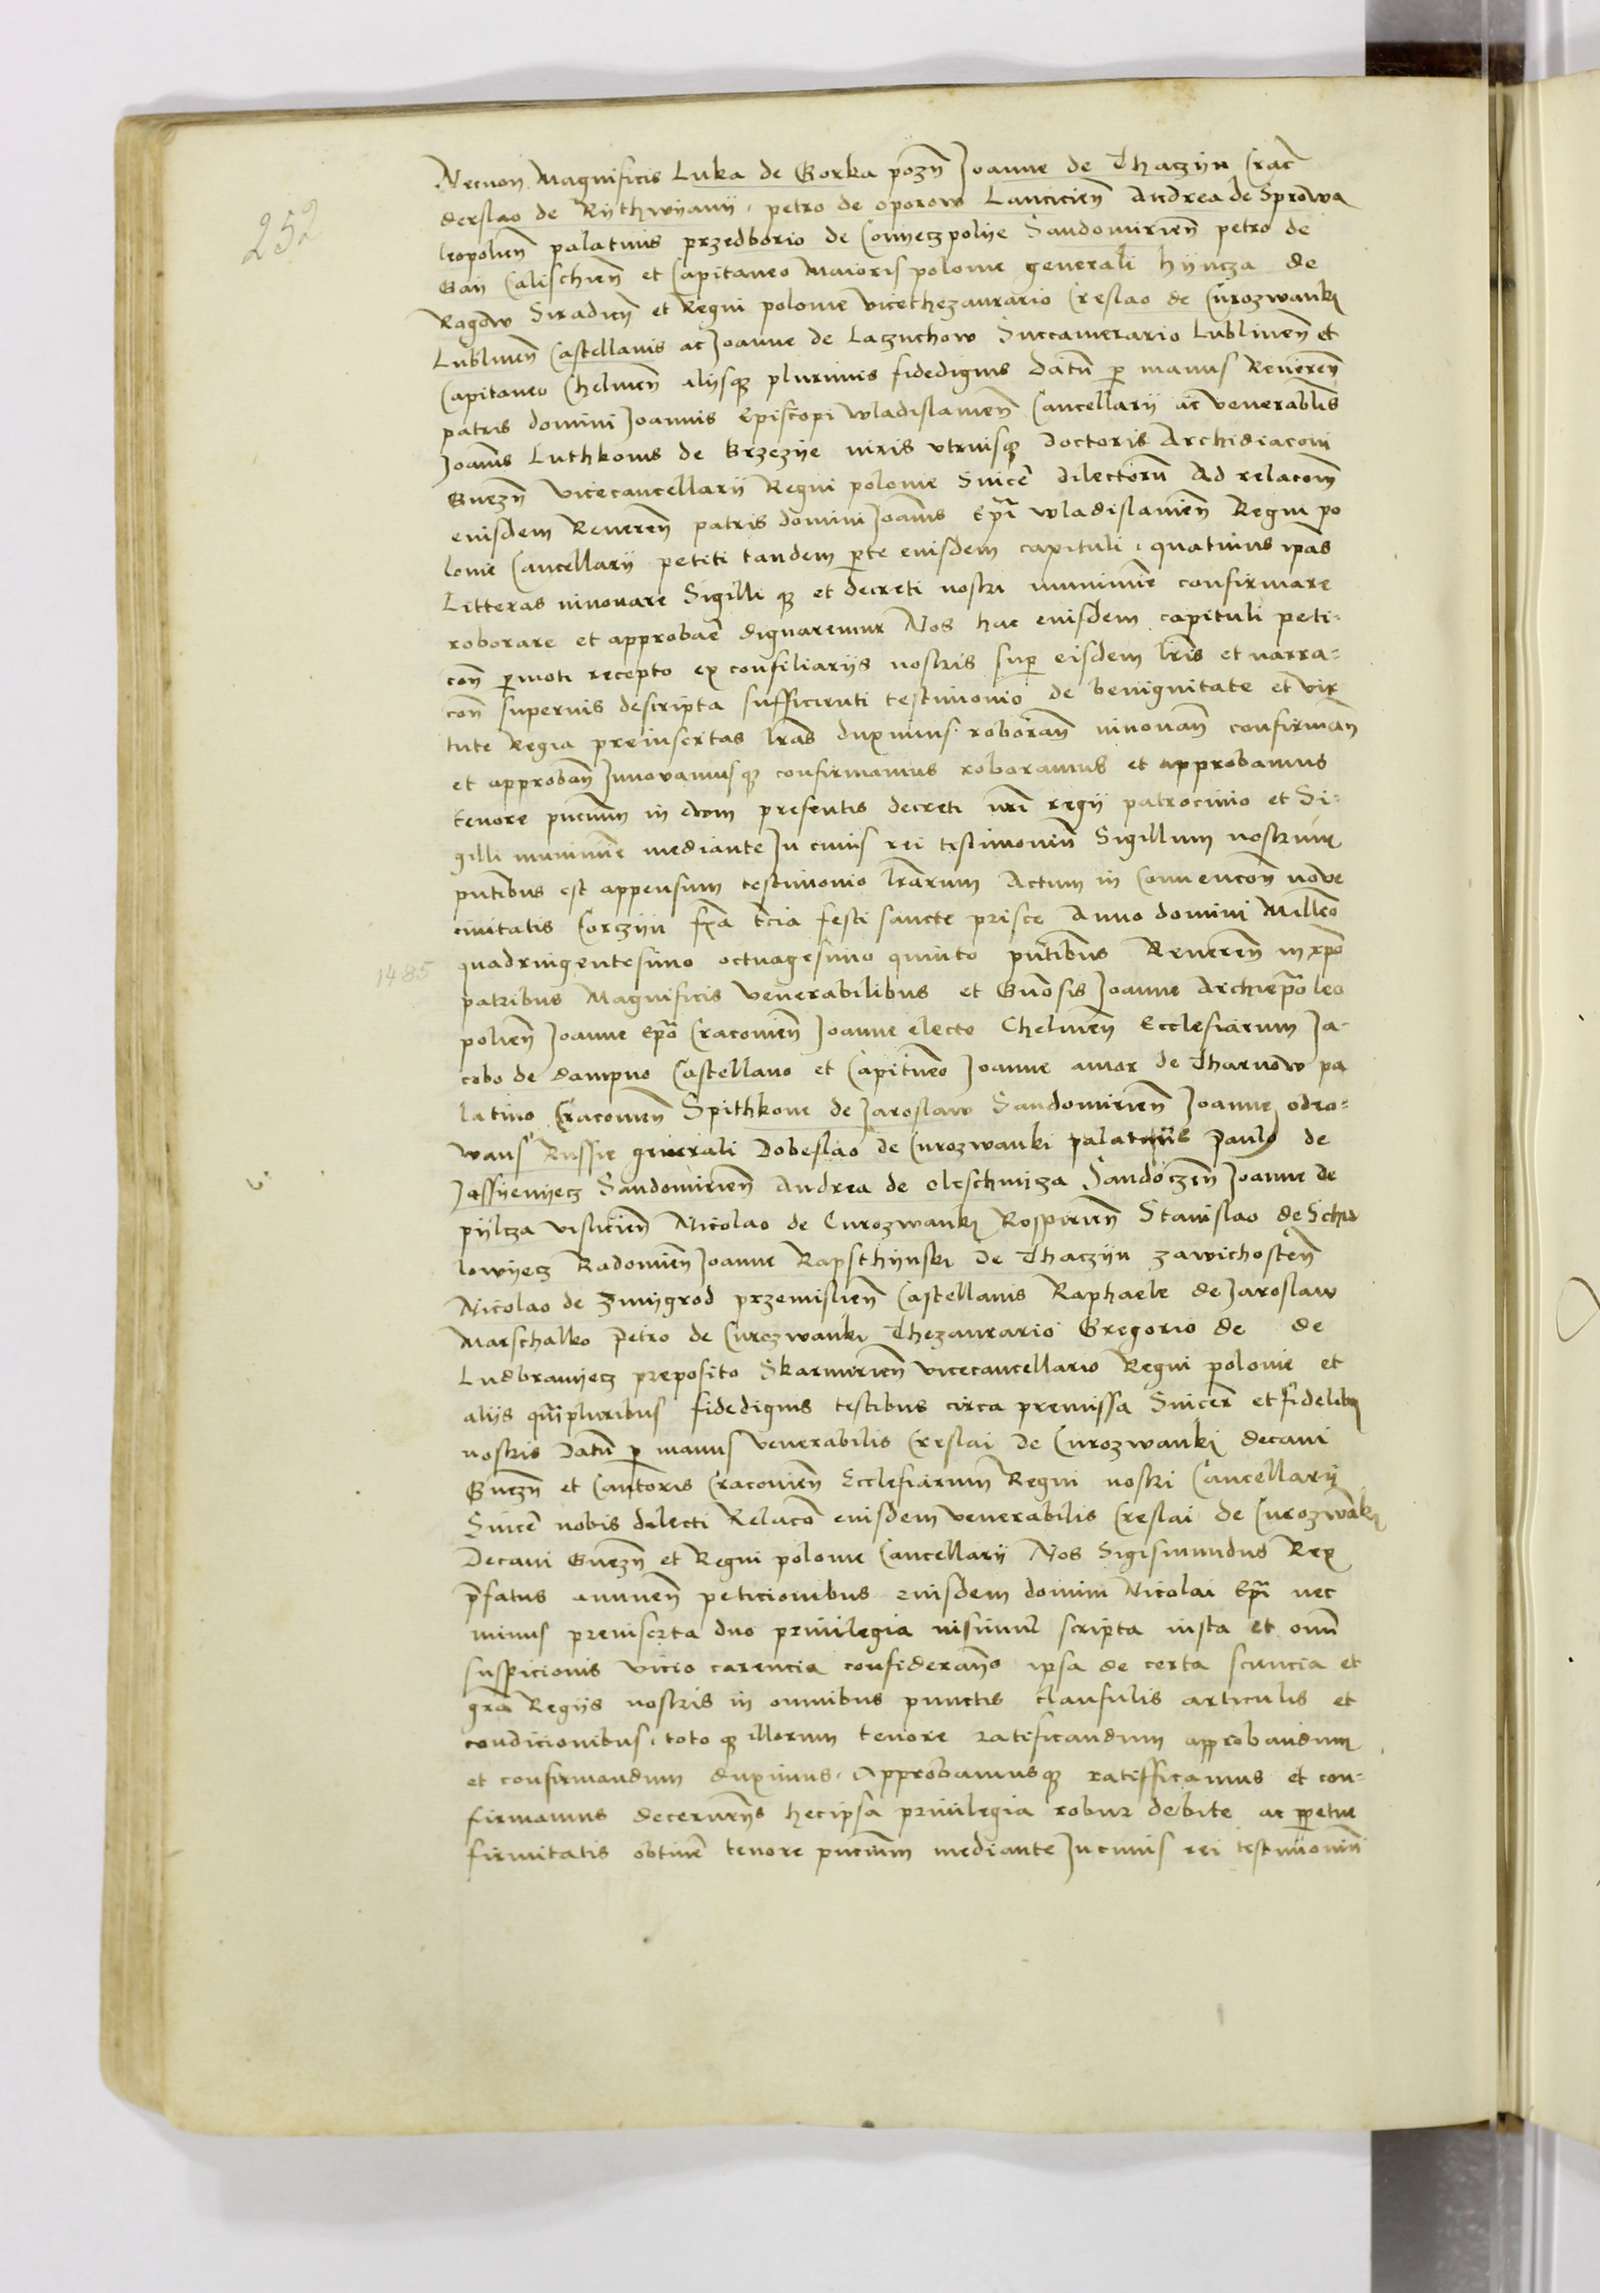 252
Necnon Magnificis Luka de Gorka pozn̄ Joanne de Thaczyn Crac̄
derslao de Rythwyany, petro de oporow Lancicien̄ Andrea de Sprowa
leopolien̄ palatinis przedborio de Conyeczpolye Sandomirien̄ petro de
Gay Calischien̄ et Capitaneo Maioris polonie generali hyncza de
Rogow Siradien̄ et Regni polonie vicethezaurario Creslao de Curozwanki
Lublinen̄ Castellanis ac Joanne de Laczuchow Succamerario Lublinen̄ et
Capitaneo Chelmen̄ alijsq̄ plurimis fidedignis Datū p manus Reueren̄
patris domini Joannis Episcopi wladislauien̄ Cancellarij ac venerabilis
Joan̄is Luthkonis de Brzezye iuris vtriusq̄ Doctoris Archidiaconi
Gnezn̄ vicecancellarij Regni polonie Since᷑ dilectorū Ad relacoem
eiusdem Reueren̄ patris domini Joan̄is Ep̄i wladislauien̄ Regni po
lonie Cancellarij petiti tandem p̄te eiusdem capituli, quatinus ip̄as
Litteras innouare Sigilli q̄ et decreti nostri munimine confirmare
roborare et approbar̄e dignaremur Nos hac eiusdem capituli peti-
con̄ p̄moti recepto ex consiliarijs nostris sup̄ eisdem lr̄is et narra-
con̄ superius descripta sufficienti testimonio de benignitate et vir
tute Regia preinsertas lr̄as duximus roboran̄ innouan̄ confirman̄
et approban̄ Innouamusq̄ confirmamus roboramus et approbamus
tenore pn̄cium in eom̄ presentis decreti nr̄i regij patrocinio et Si-
gilli munimine mediante In cuius rei testimoniū Sigillum nostrum
pn̄tibus est appensum testimonio lr̄arum Actum in Conuencon̄ noue
ciuitatis Corczyn fr̄ia t̄cia festi sancte prisce Anno domini Mill̄eo
1485
quadringentesimo octuagesimo quinto pn̄tibus Reueren̄ in xp̄o
patribus Magnificis venerabilibus et Gn̄osis Joanne Archiep̄o leo
polien̄ Joanne Ep̄o Cracouien̄ Joanne electo Chelmen̄ Ecclesiarum Ja-
cobo de dampno Castellano et Capit̄neo Joanne amor de Tharnow pa
latino Cracouien̄ Spithkone de Jaroslaw Sandomirien̄ Joanne odro-
wans Russie generali Dobeslao de Curozwanki palatinis paulo de
Jassyenyecz Sandomirien̄ Andrea de oleschnicza Sandoczen̄ Joanne de
pylcza visliciēn Nicolao de Curozwanki Rospirien̄ Stanislao de Schid
lowyecz Radomien̄ Joanne Rapsthynski de Thaczyn zawichosten̄
Nicolao de zmygrod przemislien̄ Castellanis Raphaele de Jaroslaw
Marschalko Petro de Curozwanki Thezaurario Gregorio de de
Ludbranyecz preposito Skarmirien̄ vicecancellario Regni polonie et
alijs qmpluribus fidedignis testibus circa premissa Sincer̄ et fidelibus
nostris Datū p manus venerabilis Creslai de Curozwanki decani
Gnezn̄ et Cantoris Cracouien̄ Ecclesiarum Regni nostri Cancellarij
Since᷑ nobis dilecti Relaco᷑ eiusdem venerabilis Creslai de Curozwāki
Decani Gnezn̄ et Regni polonie Cancellarij Nos Sigismundus Rex
p̄fatus annuen̄ peticionibus eiusdem domini Nicolai Ep̄i nec
minus preinserta duo priuilegia insimul scripta iusta et omni
suspicionis vicio carencia consideran̄s ipsa de certa sciencia et
gr̄a Regijs nostris in omnibus punctis clausulis articulis et
condicionibus, toto q̄ illorum tenore ratificandum approbandum
et confirmandum duximus, Approbamusq̄ ratifficamus et con-
firmamus decernen̄s hec ipsa priuilegia robur debite ac p̄petue
firmitatis obtiner̄e tenore pn̄cium mediante In cuius rei testimoniū